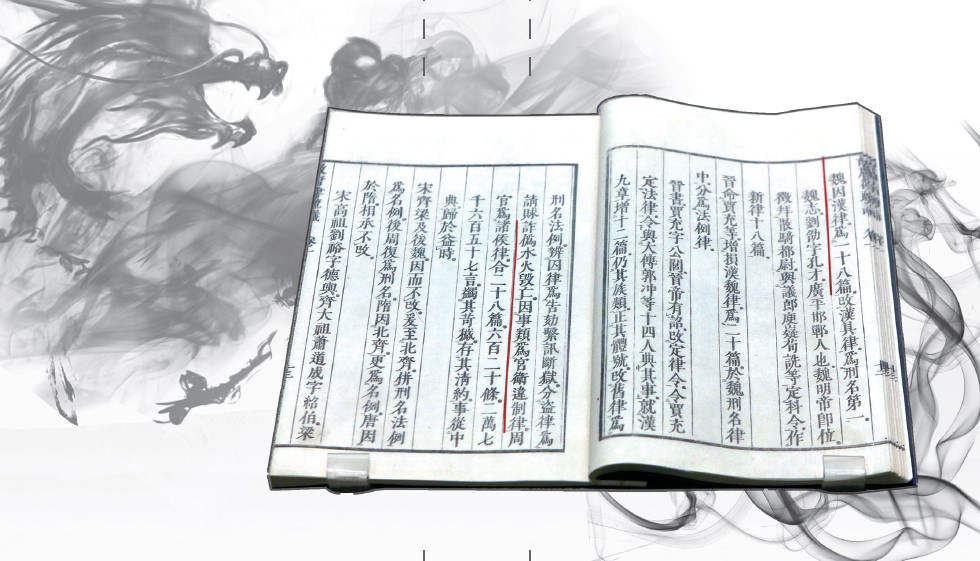 魏因漢律爲一十八篇改漢具律爲刑名第一
魏志劉劭字孔才廣平邯鄲人也魏明帝即位
徵拜散騎都尉與議郎庾嶷荀詵等定科令作
新律十八篇
晉命賈充等增損漢魏律爲二十篇於魏刑名律
中分爲法例律
晉書賈充字公閭晉帝有詔改定律令令賈充
定法律令與太傅郭冲等十四人典其事就漢
九章增十一篇仍其族類正其體號改舊律爲
刑名法例辨因律爲告劾繫訊斷獄分盜律爲
請賕詐僞水火毀亡因事類爲官衛違制律周
官爲諸侯律合二十八篇六百二十條二萬七
千六百五十七言蠲其苛穢存其淸約事從中
典歸於益時
宋齊梁及後魏因而不改爰至北齊併刑名法例
爲名例後周復爲刑名隋因北齊更爲名例唐因
於隋相承不改
宋高祖劉裕字德輿齊太祖蕭道成字紹伯梁